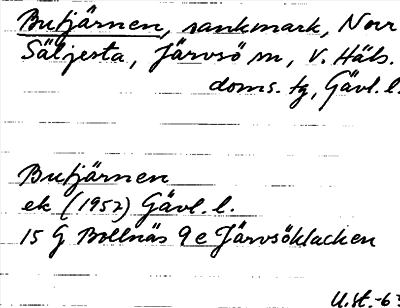 Butjärnen, sankmark, Norr
Säljesta, Järvsö sn, V. Häls.
doms. tg, Gävl. l.
Butjärnen
ek (1952) Gävl. l.
15 G Bollnäs 9 e Järvsöklacken
U.st.-63